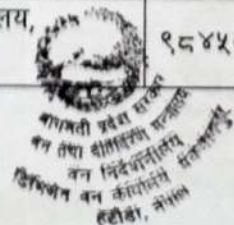 लय,
९८४५
बागमती प्रदेश सरकार
वन तथा वातावरण मन्त्रालय
वन निर्देशनालय
डिभिजन वन कार्यालय मकवानपुर
हेटौंडा, नेपाल